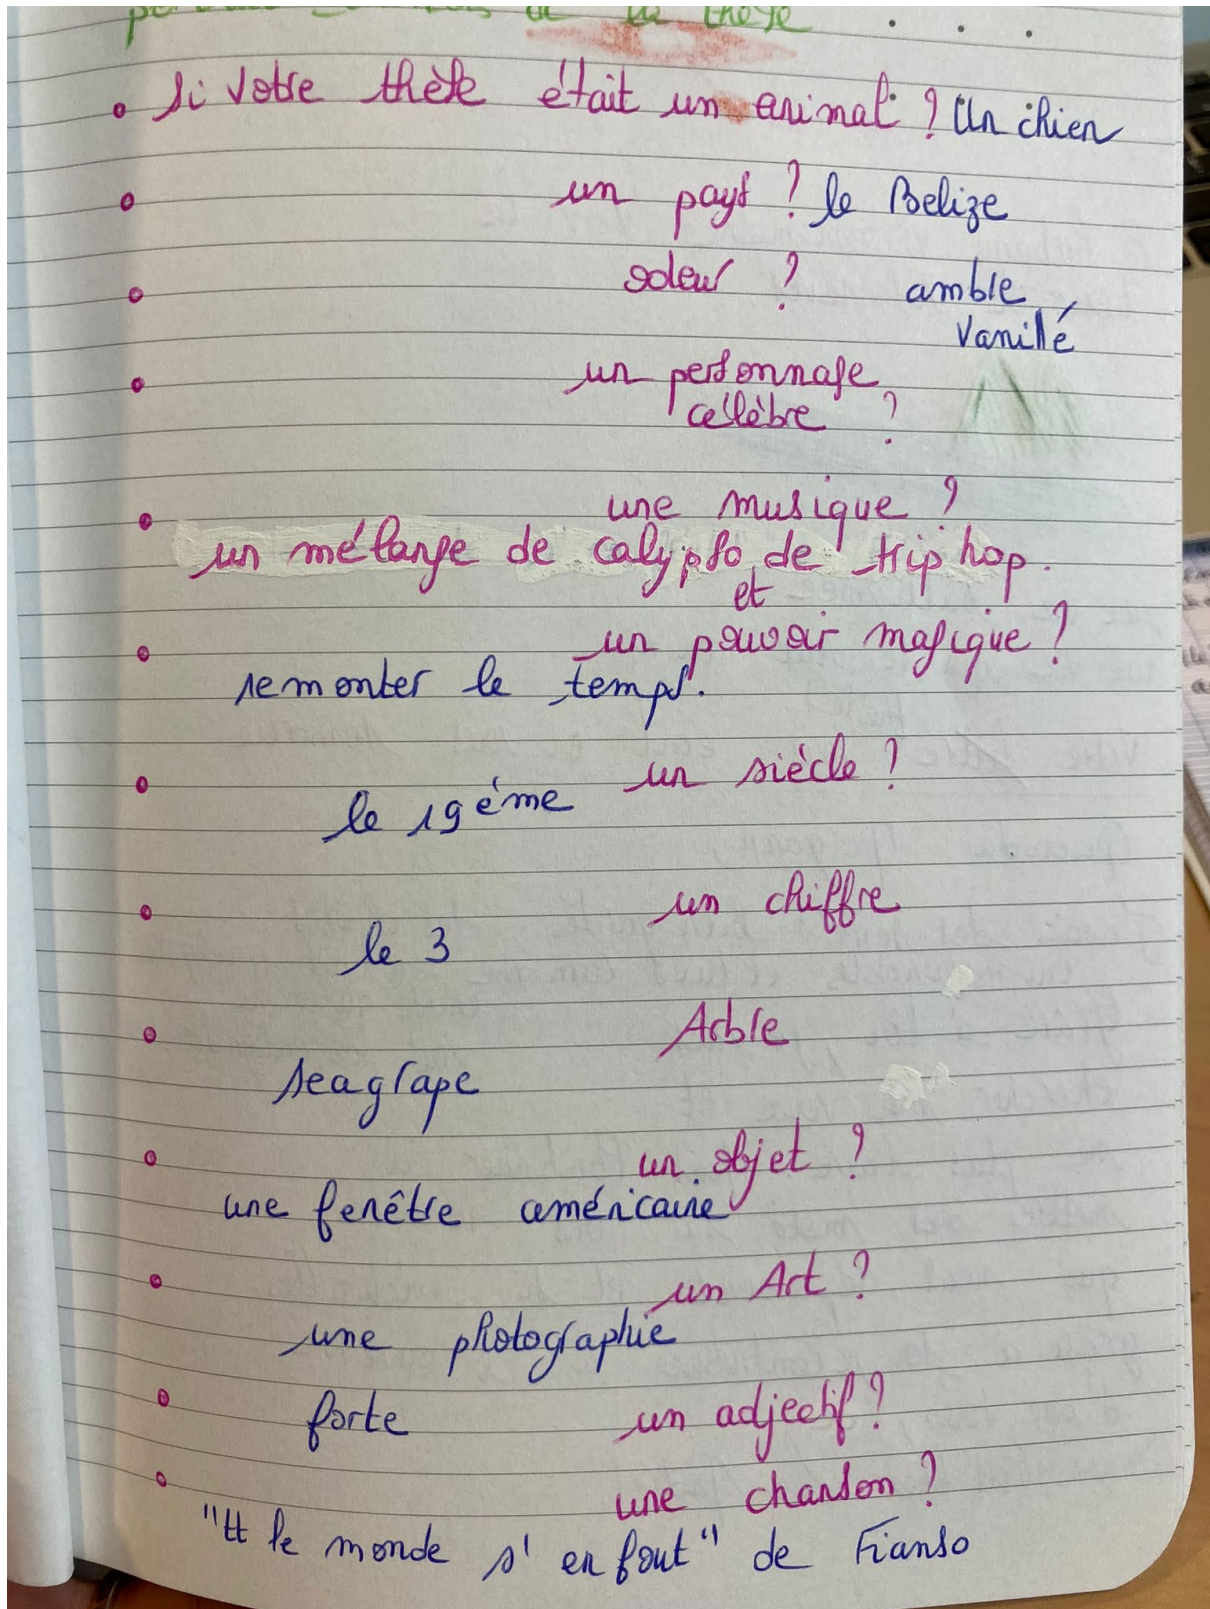 de la thèse . . .
• Si votre thèse était un animal ? Un chien
• un pays ? le Belize
• odeur ? ambre
vanillé
• un personnage
célèbre ?
• une musique ?
un mélange de calypso de trip hop.
et
• un pouvoir magique ?
remonter le temps.
• un siècle ?
le 19ème
• un chiffre
le 3
• Arbre
seagrape
• un objet ?
une fenêtre américaine
• un Art ?
une photographie
• forte un adjectif ?
• une chanson ?
"tt le monde s'en fout" de Fianso